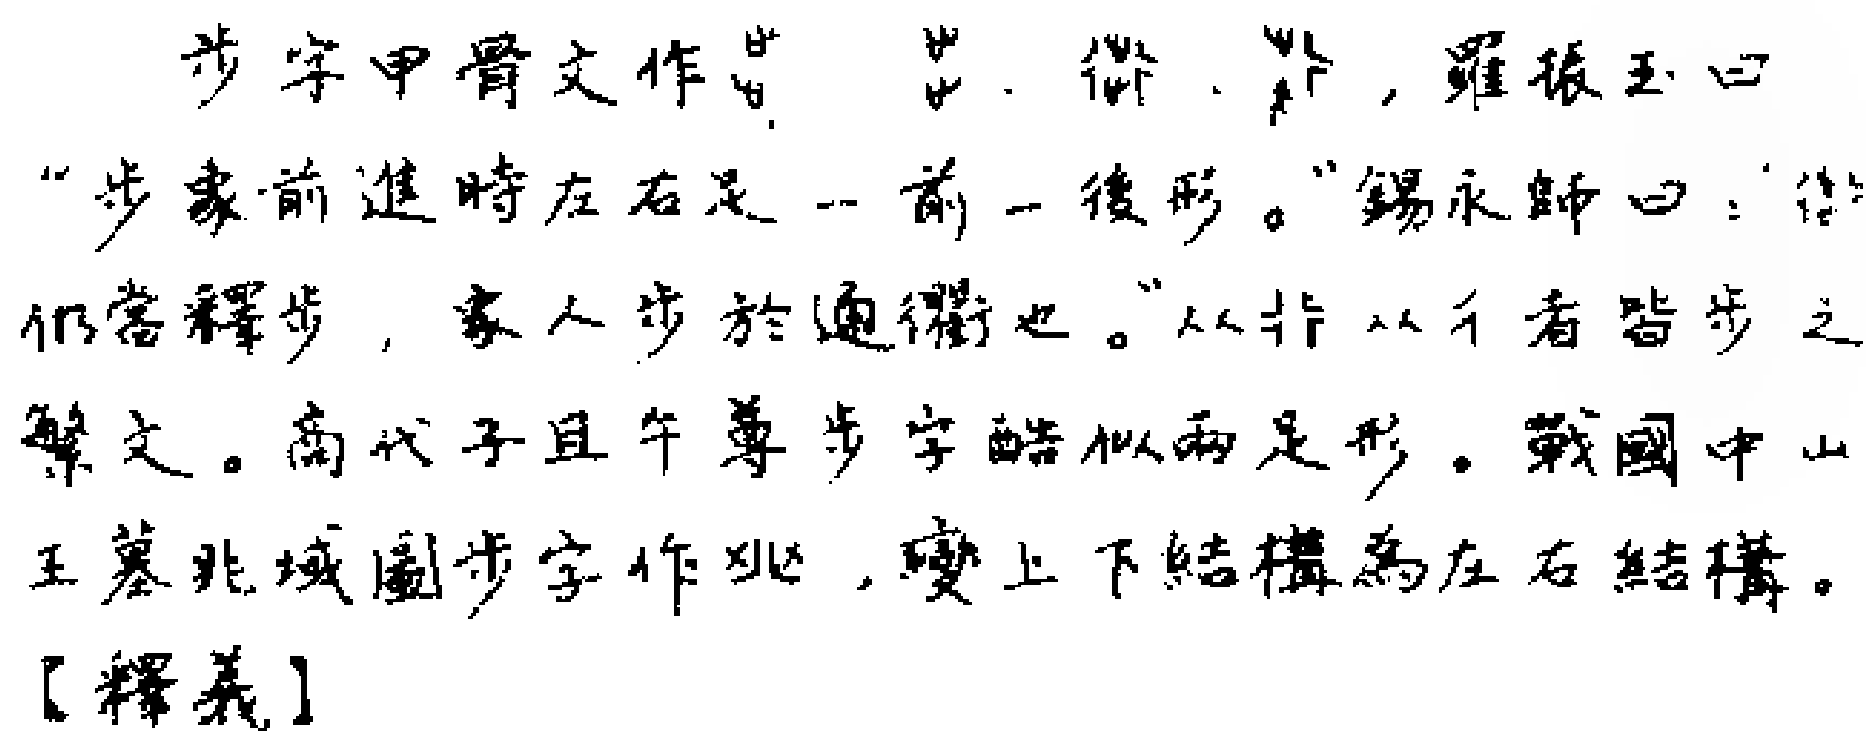 步字甲骨文作 . . ，羅振玉曰
“步象前進時左右足一前一後形。”錫永師曰：“
仍當釋步，象人步於通衢也。”从止从行者皆步之
繁文。商代子且午尊步字酷似兩足形。戰國中山
王墓兆域圖步字作，變上下結構為左右結構。
【釋義】